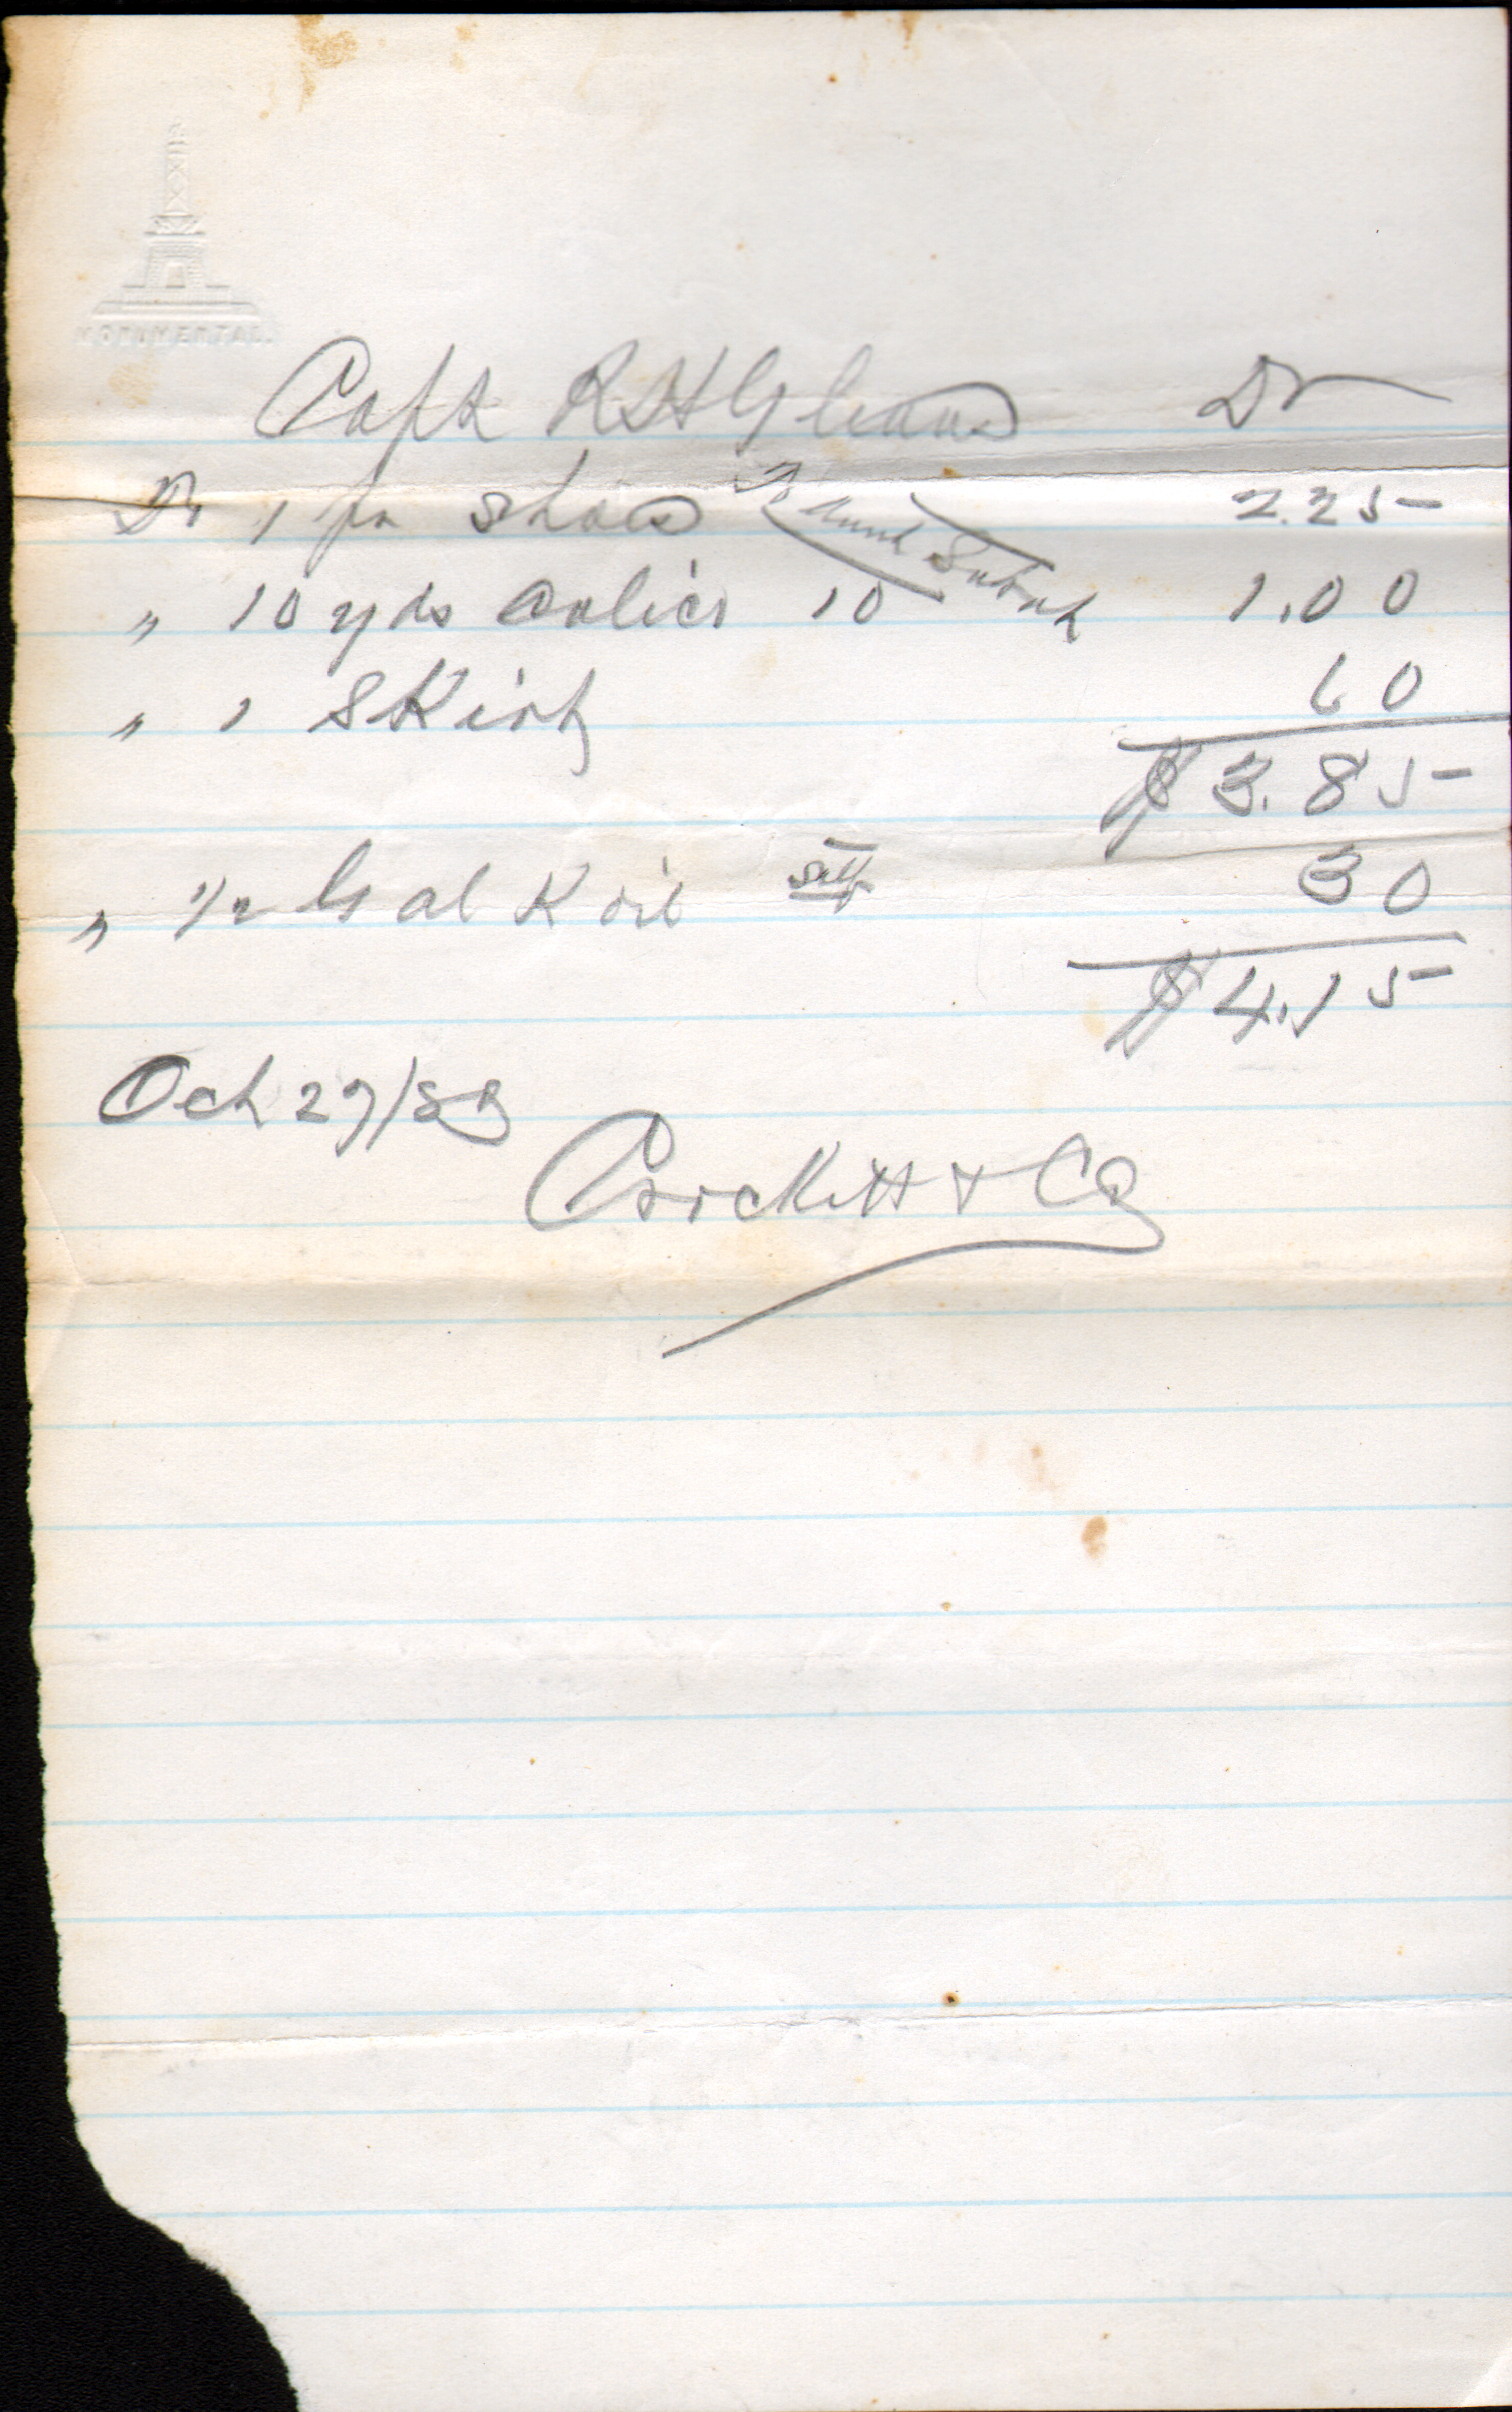 MONUMENTAL.
Capt R H Gleaves Dr
To 1 pr Shoes 2.25
" 10 yds Calico 10 1.00
" 1 Skirt 60
$ 3.85
" 1/2 Gal K oil Self 30
$ 4.15
Oct 27/
Crockett & Co